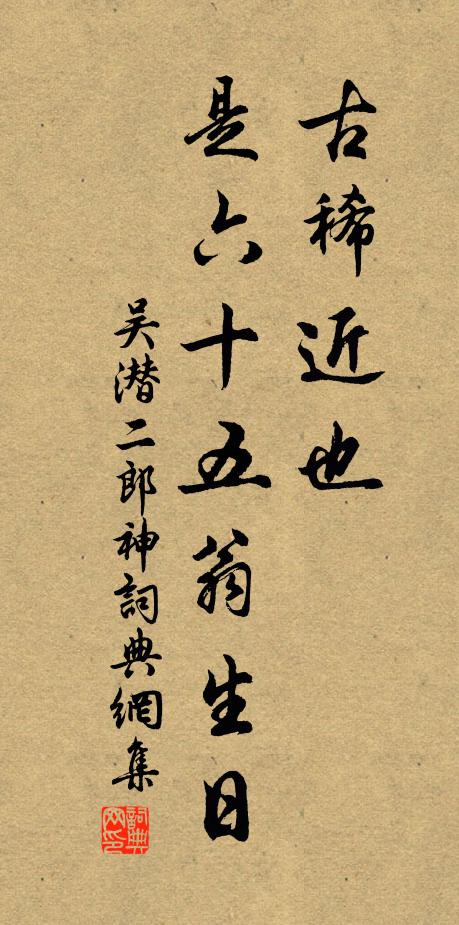 古稀近也
是六十五翁生日
吴潜二郎神詞典網集
詞典网印